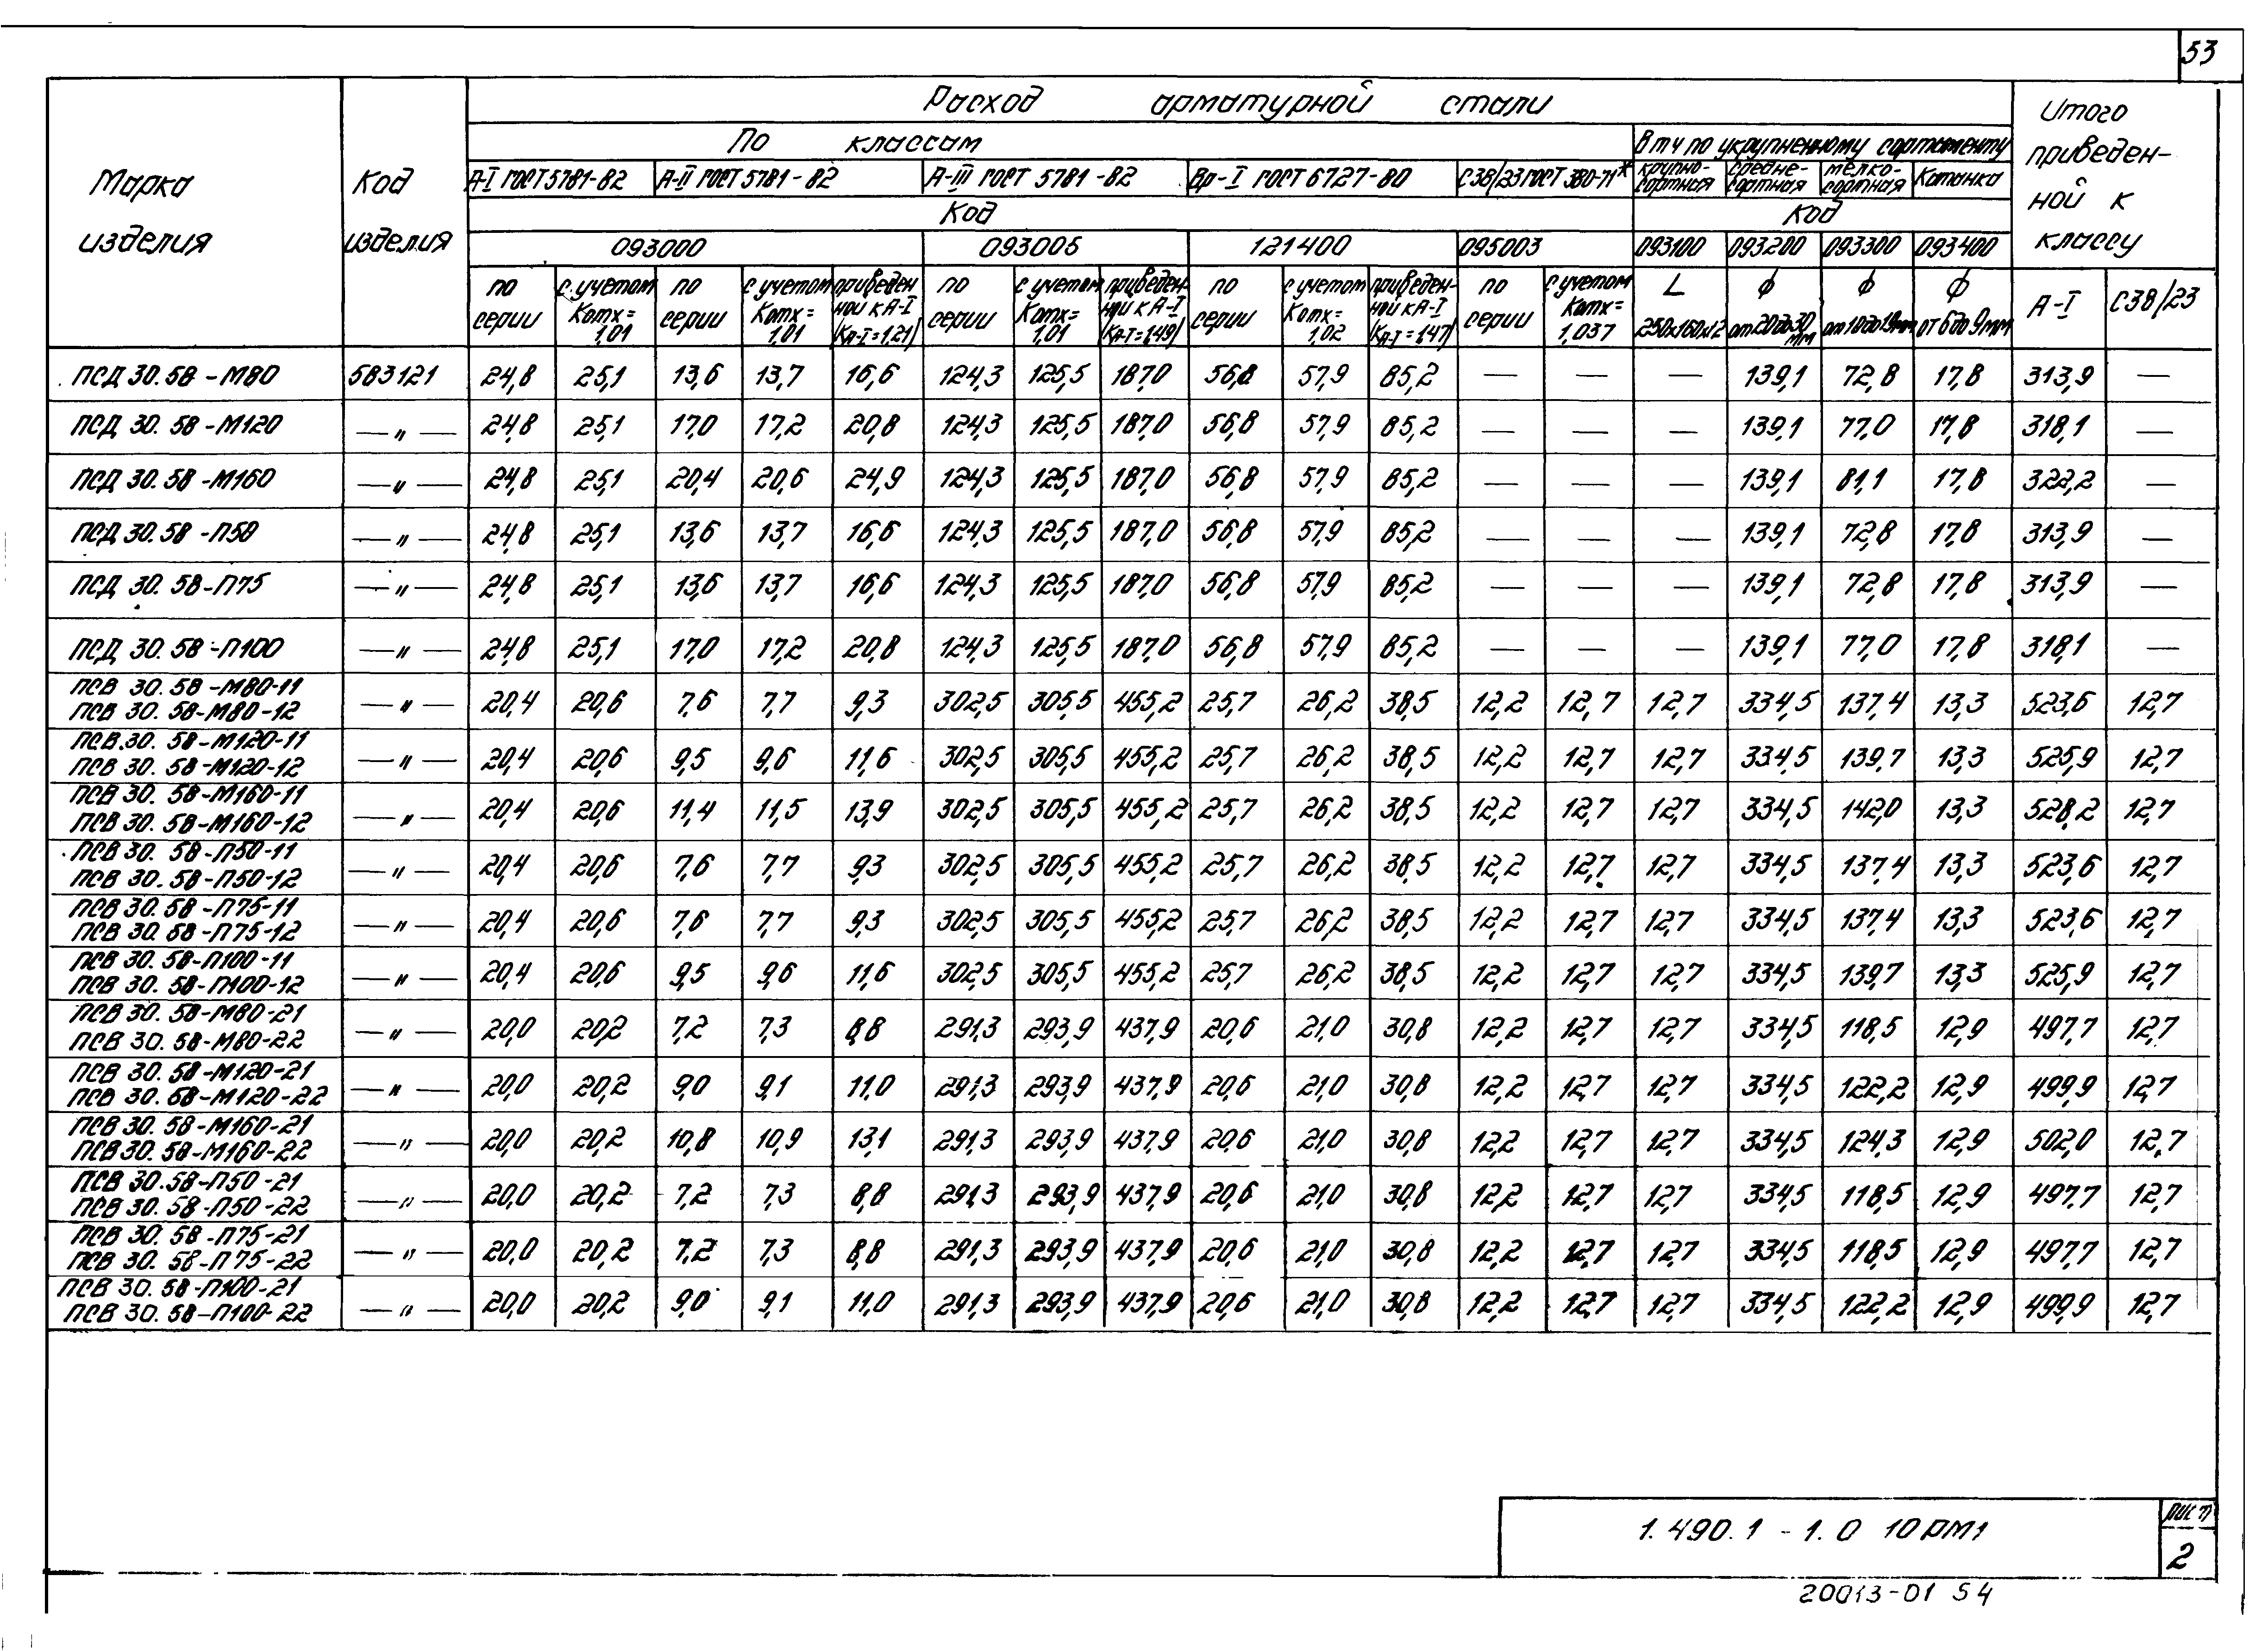 53
Расход арматурной стали
Итого приведенной к классу
Марка изделия
Код изделия
По классам
В т ч по укрупненному сортаменту
А-I ГОСТ 5781-82 А-II ГОСТ 5781-82 А-III ГОСТ 5781-82 Вр-I ГОСТ 6727-80 С38/23 ГОСТ 380-71* крупно-сортная средне-сортная мелко-сортная Катанка
Код Код
093000 093006 121400 095003 093100 093200 093300 093400
по серии с учетом Kотх=1,01 по серии с учетом Kотх=1,01 приведенной к А-I (KА-I=1,21) по серии с учетом Kотх=1,01 приведенной к А-I (KА-I=1,49) по серии с учетом Kотх=1,02 приведенной к А-I (KА-I=1,47) по серии с учетом Kотх=1,037 L 250х160х12 ф от 20 до 30 мм ф от 10 до 19мм ф от 6 до 9мм А-I С38/23
ПСД 30.58-М80 583121 24,8 25,1 13,6 13,7 16,6 124,3 125,5 187,0 56,8 57,9 85,2 — — — 139,1 72,8 17,8 313,9 —
ПСД 30.58-М120 —"— 24,8 25,1 17,0 17,2 20,8 124,3 125,5 187,0 56,8 57,9 85,2 — — — 139,1 77,0 17,8 318,1 —
ПСД 30.58-М160 —"— 24,8 25,1 20,4 20,6 24,9 124,3 125,5 187,0 56,8 57,9 85,2 — — — 139,1 81,1 17,8 322,2 —
ПСД 30.58-П50 —"— 24,8 25,1 13,6 13,7 16,6 124,3 125,5 187,0 56,8 57,9 85,2 — — — 139,1 72,8 17,8 313,9 —
ПСД 30.58-П75 —"— 24,8 25,1 13,6 13,7 16,6 124,3 125,5 187,0 56,8 57,9 85,2 — — — 139,1 72,8 17,8 313,9 —
ПСД 30.58-П100 —"— 24,8 25,1 17,0 17,2 20,8 124,3 125,5 187,0 56,8 57,9 85,2 — — — 139,1 77,0 17,8 318,1 —
ПСВ 30.58-М80-11
ПСВ 30.58-М80-12 —"— 20,4 20,6 7,6 7,7 9,3 302,5 305,5 455,2 25,7 26,2 38,5 12,2 12,7 12,7 334,5 137,4 13,3 523,6 12,7
ПСВ.30.58-М120-11
ПСВ 30.58-М120-12 —"— 20,4 20,6 9,5 9,6 11,6 302,5 305,5 455,2 25,7 26,2 38,5 12,2 12,7 12,7 334,5 139,7 13,3 525,9 12,7
ПСВ 30.58-М160-11
ПСВ 30.58-М160-12 —"— 20,4 20,6 11,4 11,5 13,9 302,5 305,5 455,2 25,7 26,2 38,5 12,2 12,7 12,7 334,5 142,0 13,3 528,2 12,7
ПСВ 30.58-П50-11
ПСВ 30.58-П50-12 —"— 20,4 20,6 7,6 7,7 9,3 302,5 305,5 455,2 25,7 26,2 38,5 12,2 12,7 12,7 334,5 137,4 13,3 523,6 12,7
ПСВ 30.58-П75-11
ПСВ 30.58-П75-12 —"— 20,4 20,6 7,6 7,7 9,3 302,5 305,5 455,2 25,7 26,2 38,5 12,2 12,7 12,7 334,5 137,4 13,3 523,6 12,7
ПСВ 30.58-П100-11
ПСВ 30.58-П100-12 —"— 20,4 20,6 9,5 9,6 11,6 302,5 305,5 455,2 25,7 26,2 38,5 12,2 12,7 12,7 334,5 139,7 13,3 525,9 12,7
ПСВ 30.58-М80-21
ПСВ 30.58-М80-22 —"— 20,0 20,2 7,2 7,3 8,8 291,3 293,9 437,9 20,6 21,0 30,8 12,2 12,7 12,7 334,5 118,5 12,9 497,7 12,7
ПСВ 30.58-М120-21
ПСВ 30.58-М120-22 —"— 20,0 20,2 9,0 9,1 11,0 291,3 293,9 437,9 20,6 21,0 30,8 12,2 12,7 12,7 334,5 122,2 12,9 499,9 12,7
ПСВ 30.58-М160-21
ПСВ 30.58-М160-22 —"— 20,0 20,2 10,8 10,9 13,1 291,3 293,9 437,9 20,6 21,0 30,8 12,2 12,7 12,7 334,5 124,3 12,9 502,0 12,7
ПСВ 30.58-П50-21
ПСВ 30.58-П50-22 —"— 20,0 20,2 7,2 7,3 8,8 291,3 293,9 437,9 20,6 21,0 30,8 12,2 12,7 12,7 334,5 118,5 12,9 497,7 12,7
ПСВ 30.58-П75-21
ПСВ 30.58-П75-22 —"— 20,0 20,2 7,2 7,3 8,8 291,3 293,9 437,9 20,6 21,0 30,8 12,2 12,7 12,7 334,5 118,5 12,9 497,7 12,7
ПСВ 30.58-П100-21
ПСВ 30.58-П100-22 —"— 20,0 20,2 9,0 9,1 11,0 291,3 293,9 437,9 20,6 21,0 30,8 12,2 12,7 12,7 334,5 122,2 12,9 499,9 12,7
1.490.1-1.0 10РМ1
Лист
2
20013-01 54